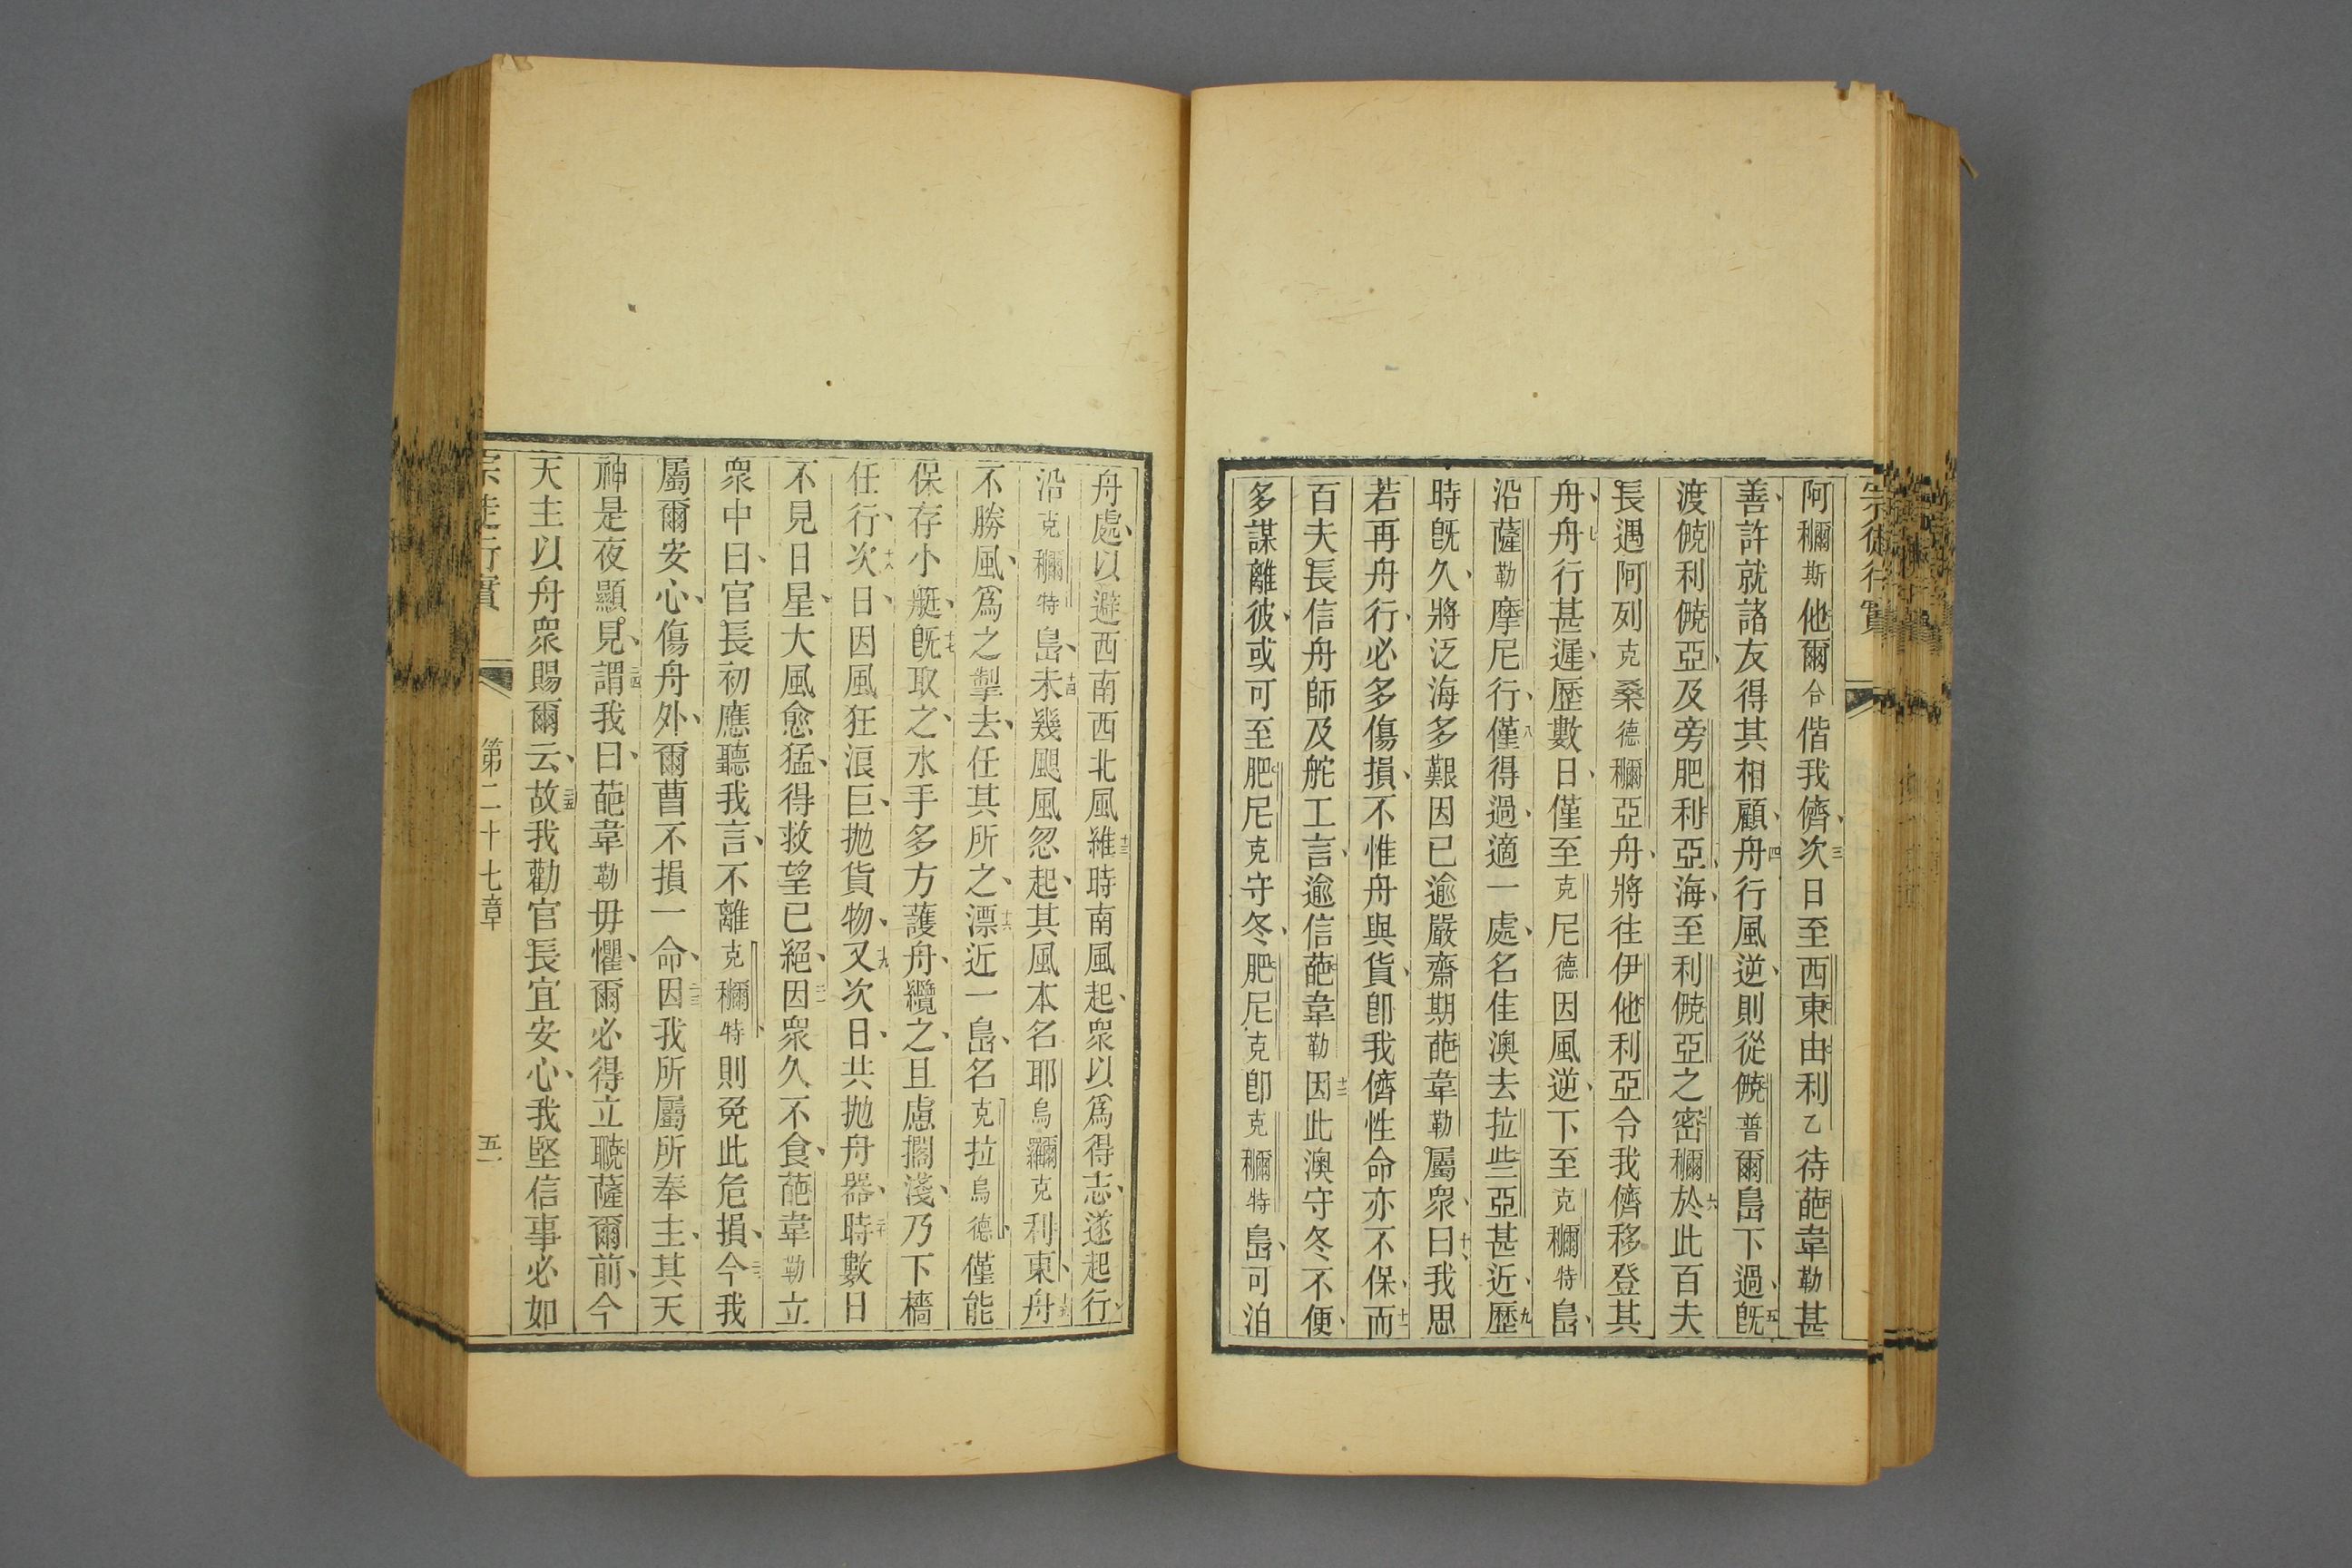 宗徒行實
阿穪斯他爾合偕我儕、三次日至西東由利乙待葩韋勒甚
善、許就諸友得其相顧、四舟行風逆、則從僥普爾島下過、五旣
渡僥利僥亞、及旁肥利亞海、至利僥亞之密穪六於此百夫
長遇阿列克桑德穪亞舟、將往伊他利亞令我儕移登其
舟、七舟行甚遲、歷數日、僅至克尼德因風逆、下至克穪特島、
沿薩勒摩尼行、八僅得過、適一處、名佳澳去拉些亞甚近、九歷
時旣久、將泛海多艱因已逾嚴齋期葩韋勒屬衆、十曰、我思
若再舟行、必多傷損、不惟舟與貨、卽我儕性命亦不保、十一而
百夫長信舟師及舵工言、逾信葩韋勒十二因此澳守冬不便、
多謀離彼、或可至肥尼克守冬、肥尼克卽克穪特島、可泊
舟處、以避西南西北風十三維時南風起、衆以爲得志、遂起行
沿克穪特島、十四未幾颶風忽起、其風本名耶烏羅穪克利東、十五舟
不勝風、爲之掣去、任其所之、十六漂近一島、名克拉烏德、僅能
保存小艇、十七旣取之、水手多方護舟、纜之、且慮擱淺、乃下檣
任行、十八次日、因風狂浪巨、拋貨物、十九又次日、共拋舟器、二十時數日
不見日星、大風愈猛、得救望已絕、二一因衆久不食、葩韋勒立
衆中曰、官長初應聽我言、不離克穪特、則免此危損、二二今我
屬爾安心、傷舟外、爾曹不損一命、二三因我所屬所奉主、其天
神是夜顯見、二四謂我曰、葩韋勒毋懼、爾必得立聭薩爾前、今
天主以舟衆賜爾云、二五故我勸官長宜安心、我堅信事必如
宗徒行實 第二十七章 五一